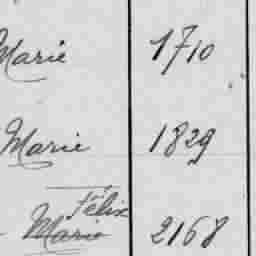 Marie 1710
Marie 1829
Félix
Marie 2168